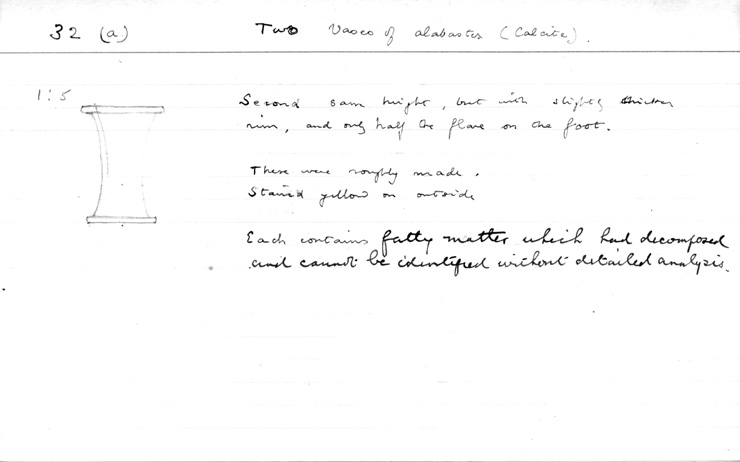 32 (a)
Two Vases of alabaster (Calcite).
1:5
Second same height, but with slightly thicker
rim, and only half the flare on the foot.
These were roughly made.
Stained yellow on outside
Each contains fatty matter which had decomposed
and cannot be identified without detailed analysis.